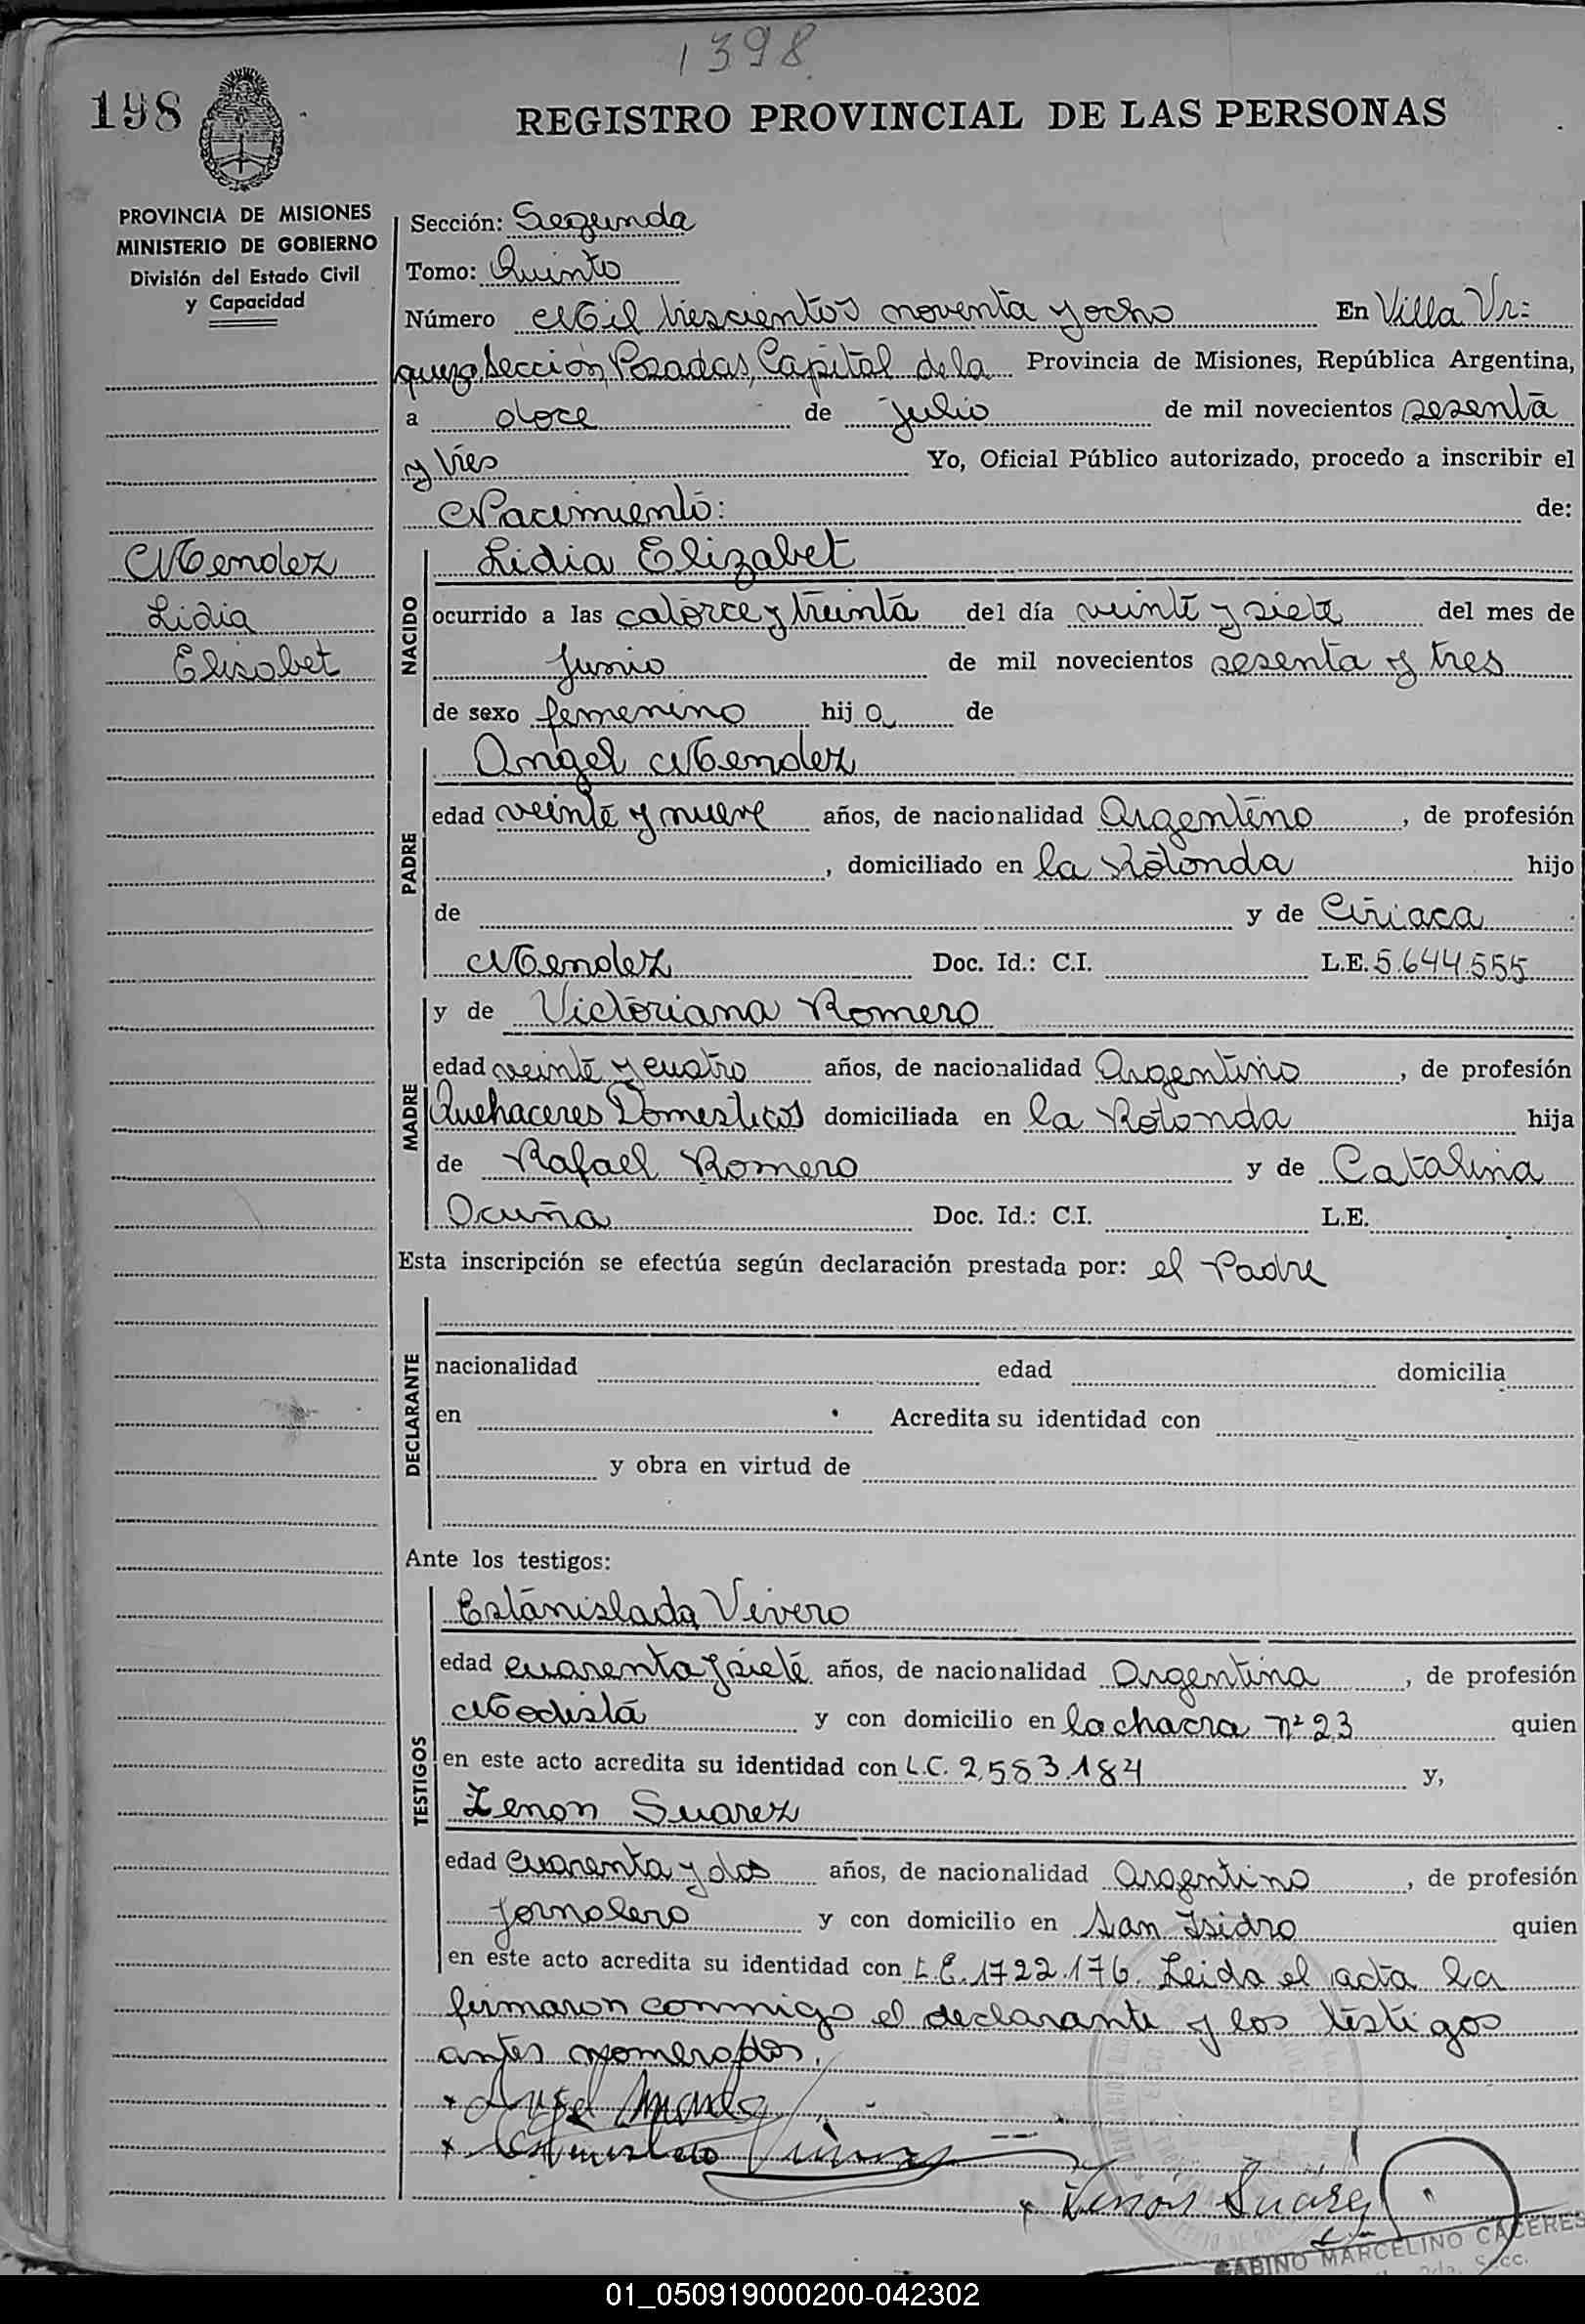 1398
198
REGISTRO PROVINCIAL DE LAS PERSONAS
PROVINCIA DE MISIONES
MINISTERIO DE GOBIERNO
División del Estado Civil
y Capacidad
Mendez
Lidia
Elisabet
Sección: Segunda
Tomo: Quinto
Número Mil trescientos noventa y ocho En Villa Ur=
quiza Sección, Posadas, Capital de la Provincia de Misiones, República Argentina,
a doce de julio de mil novecientos sesenta
y tres Yo, Oficial Público autorizado, procedo a inscribir el
Nacimiento: de:
NACIDO
Lidia Elizabet
ocurrido a las catorce y treinta del día veinte y siete del mes de
Junio de mil novecientos sesenta y tres
de sexo femenino hija de
PADRE
Angel Mendez
edad veinte y nueve años, de nacionalidad Argentino, de profesión
, domiciliado en la Rotonda hijo
de y de Ciriaca
Mendez Doc. Id.: C.I. L.E. 5.644.555
MADRE
y de Victoriana Romero
edad veinte y cuatro años, de nacionalidad Argentino, de profesión
Quehaceres Domesticos domiciliada en la Rotonda hija
de Rafael Romero y de Catalina
Ocuña Doc. Id.: C.I. L.E.
Esta inscripción se efectúa según declaración prestada por: el Padre
DECLARANTE
nacionalidad edad domicilia
en Acredita su identidad con
y obra en virtud de
Ante los testigos:
TESTIGOS
Estanislada Vivero
edad cuarenta y siete años, de nacionalidad Argentina, de profesión
Modista y con domicilio en la chacra nº 23 quien
en este acto acredita su identidad con L.C. 2.583.184 y,
Zenon Suarez
edad cuarenta y dos años, de nacionalidad argentino, de profesión
jornalero y con domicilio en San Isidro quien
en este acto acredita su identidad con L.E. 1722.176. Leida el acta la
firmaron conmigo el declarante y los testigos
antes nomerados.
Zenón Suárez
GABINO MARCELINO CACERES
2da. Secc.
01_050919000200-042302